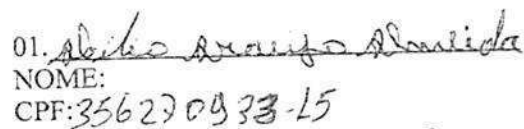 01. Abilio Araujo Almeida
NOME:
CPF:356270933-15